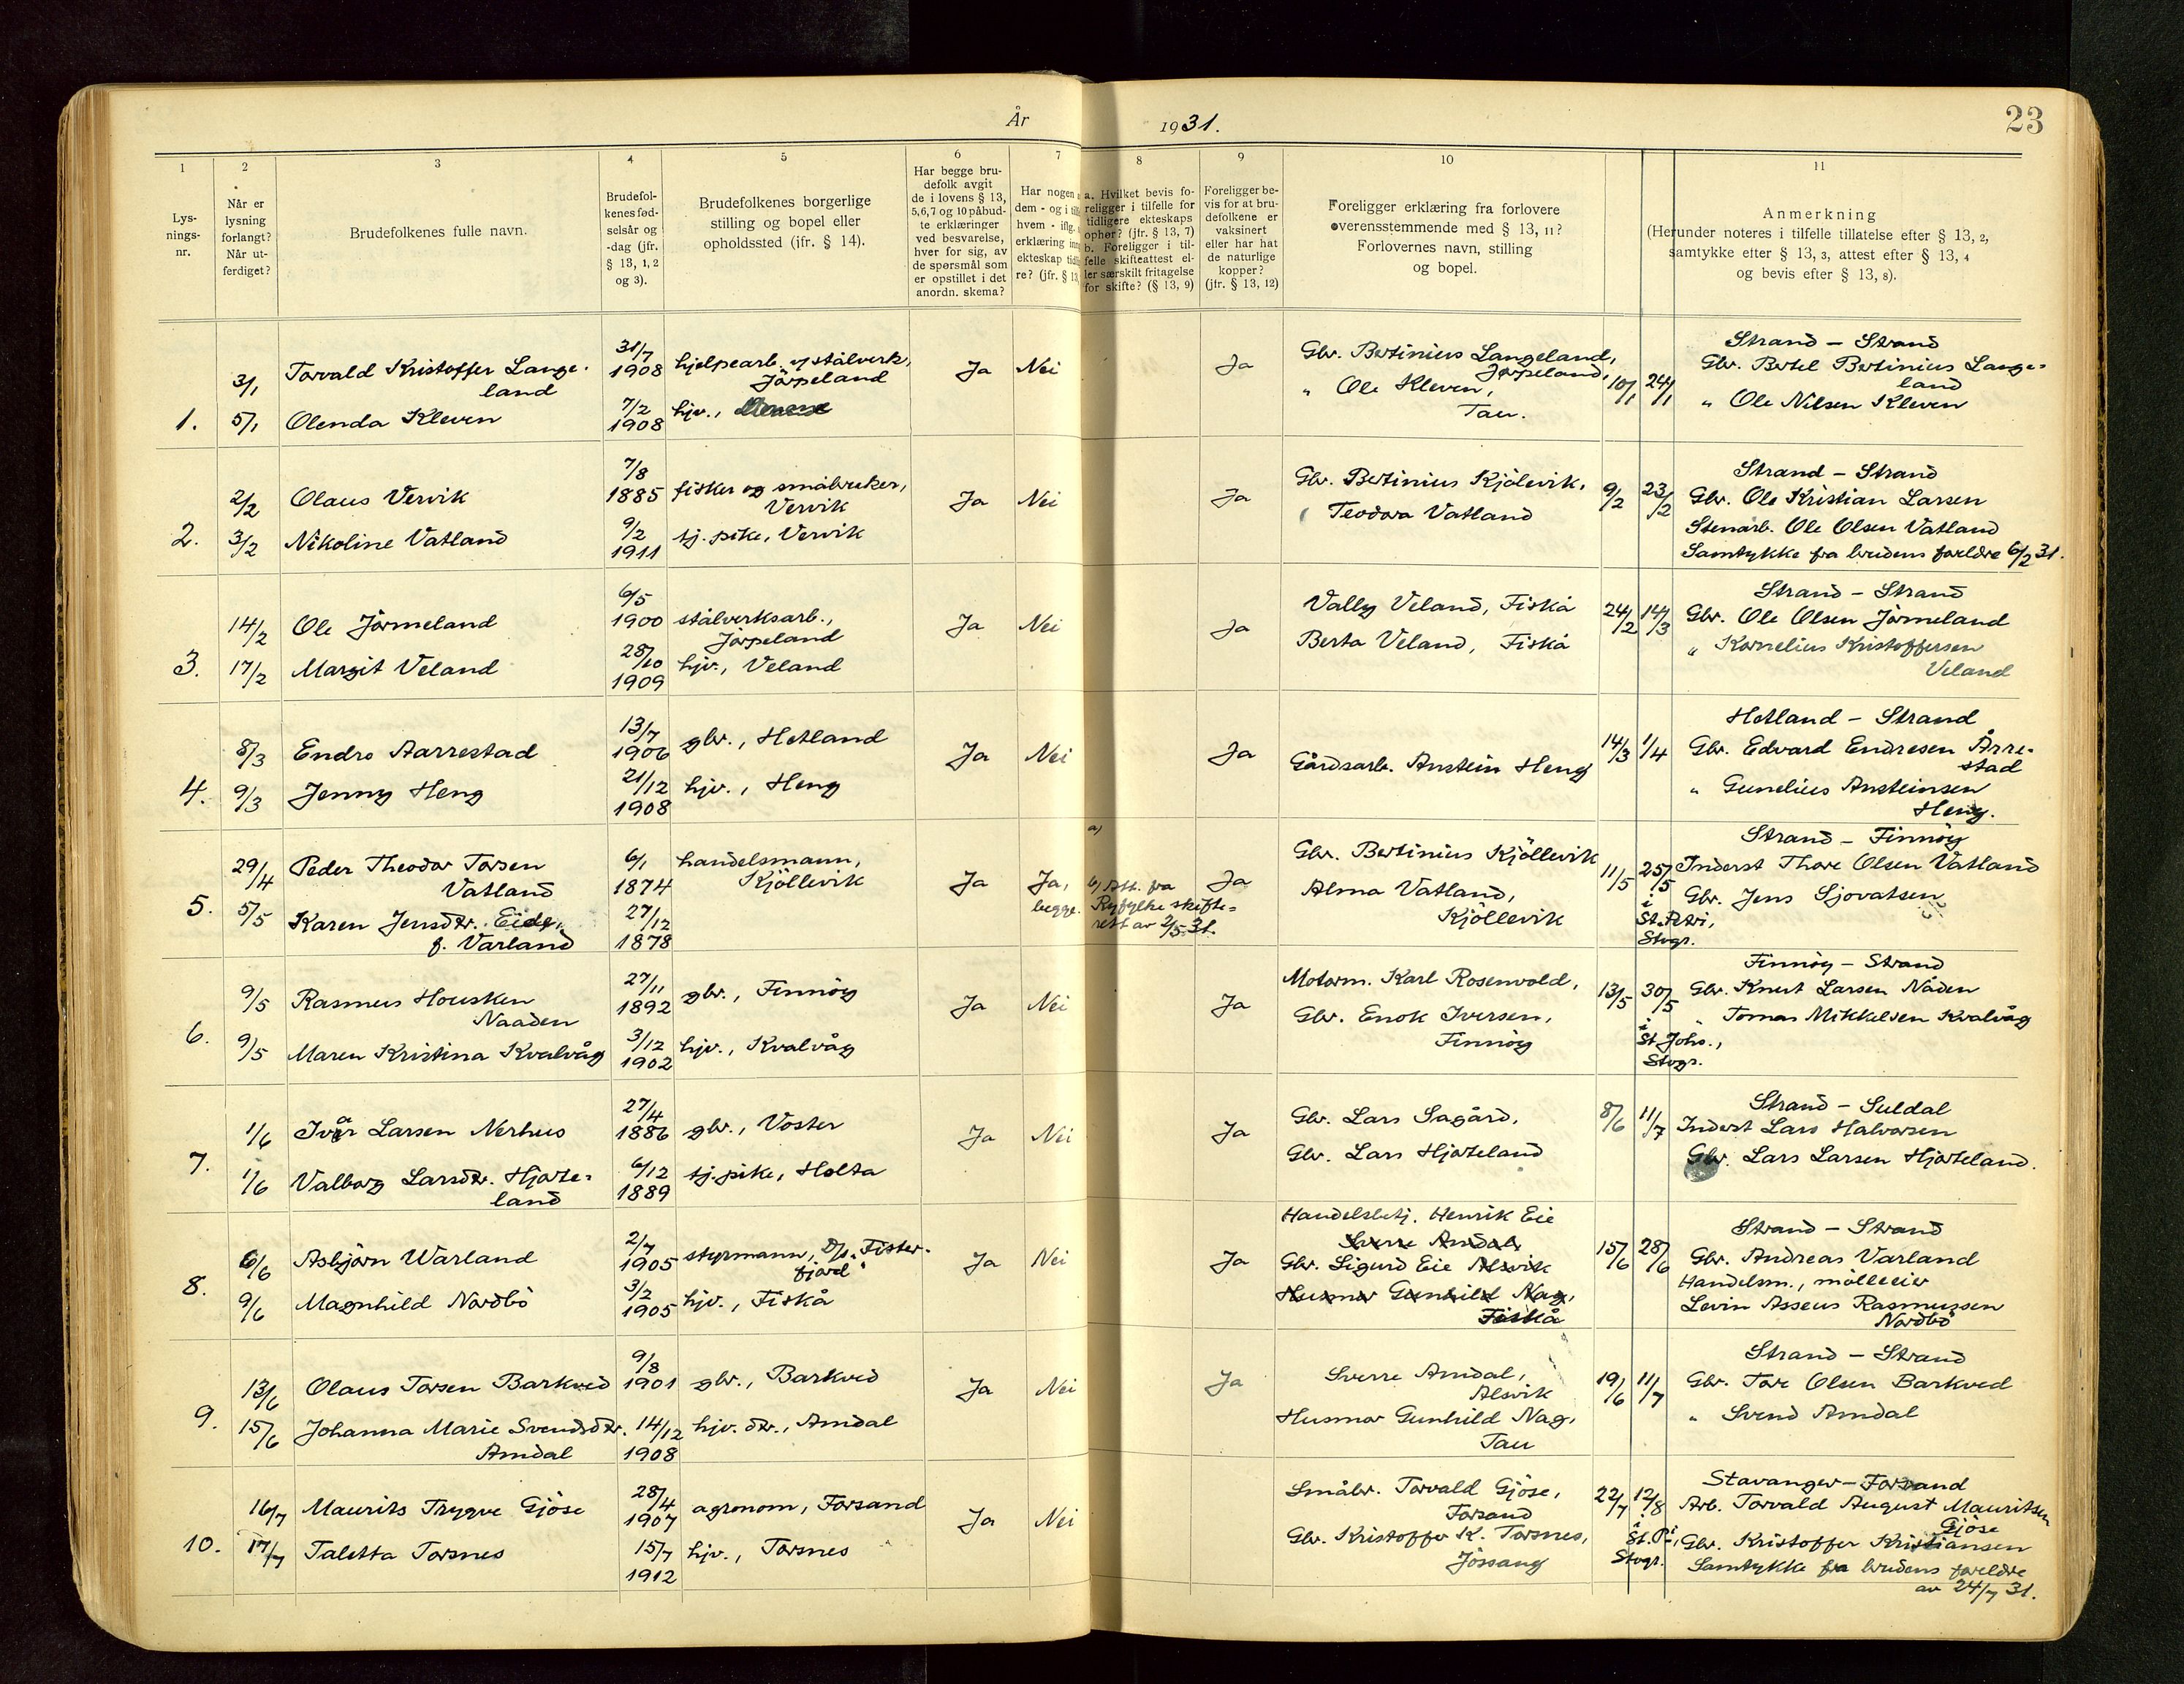 År 1931.
23
1
Lys-
nings-
nr.
2
Når er
lysning
forlangt?
Når ut-
ferdiget?
3
Brudefolkenes fulle navn.
4
Brudefol-
kenes fød-
selsår og
-dag (jfr.
§ 13, 1, 2
og 3).
5
Brudefolkenes borgerlige
stilling og bopel eller
opholdssted (jfr. § 14).
6
Har begge bru-
defolk avgit
de i lovens § 13,
5,6,7 og 10 påbud-
te erklæringer
ved besvarelse,
hver for sig, av
de spørsmål som
er opstillet i det
anordn. skema?
7
Har nogen
dem - og i
hvem - iflg.
erklæring
ekteskap
re? (jfr. § 13,
8
a. Hvilket bevis fo-
religger i tilfelle for
tidligere ekteskaps
ophør? (jfr. § 13, 7)
b. Foreligger i til-
felle skifteattest el-
ler særskilt fritagelse
for skifte? (§ 13, 9)
9
Foreligger be-
vis for at bru-
defolkene er
vaksinert
eller har hat
de naturlige
kopper?
(jfr. § 13, 12)
10
Foreligger erklæring fra forlovere
overensstemmende med § 13, 11?
Forlovernes navn, stilling
og bopel.
11
Anmerkning
(Herunder noteres i tilfelle tillatelse efter § 13, 2,
samtykke efter § 13, 3, attest efter § 13, 4
og bevis efter § 13, 8).
1.
3/1
5/1
Torvald Kristoffer Lange-
land
Olenda Kleven
31/7
1908
7/2
1908
hjelpearb. v/ stålverk,
Jörpeland
hjv.,
Ja
Nei
Ja
Gbr. Bertinius Langeland,
Jörpeland,
" Ole Kleven,
Tau.
10/1
24/1
Strand - Strand
Gbr. Bertel Bertinius Lange-
land
" Ole Nilsen Kleven
2.
2/2
3/2
Olaus Vervik
Nikoline Vatland
7/8
1885
9/2
1911
fisker og småbruker,
Vervik
tj. pike, Vervik
Ja
Nei
Ja
Gbr. Bertinius Kjölevik,
Teodora Vatland
9/2
23/2
Strand - Strand
Gbr. Ole Kristian Larsen
Stenarb. Ole Olsen Vatland
Samtykke fra brudens foreldre 6/2 31.
3.
14/2
17/2
Ole Jörmeland
Margit Veland
6/5
1900
28/10
1909
stålverksarb.,
Jörpeland
hjv., Veland
Ja
Nei
Ja
Vally Veland, Fiskå
Berta Veland, Fiskå
24/2
14/3
Strand - Strand
Gbr. Ole Olsen Jörmeland
" Kornelius Kristoffersen
Veland
4.
8/3
9/3
Endre Aarrestad
Jenny Heng
13/7
1906
21/12
1908
gbr., Hetland
hjv., Heng
Ja
Nei
Ja
Gårdsarb. Anstein Heng
14/3
1/4
Hetland - Strand
Gbr. Edvard Endresen Årre-
stad
" Gunelius Ansteinsen
Heng.
5.
29/4
5/5
Peder Theodor Torsen
Vatland
Karen Jensdtr. Eide,
f. Varland
6/1
1874
27/12
1878
handelsmann,
Kjöllevik
Ja
Ja,
begge.
a)
b) Att. fra
Ryfylke skifte-
rett av 2/5 31.
Ja
Gbr. Bertinius Kjöllevik
Alma Vatland,
Kjöllevik
11/5
25/5
i
St. Petri,
Stvgr.
Strand - Finnöy
Inderst Thore Olsen Vatland
Gbr. Jens Sjovatsen
6.
9/5
9/5
Rasmus Housken
Naaden
Maren Kristina Kvalvåg
27/11
1892
3/12
1902
gbr., Finnöy
hjv., Kvalvåg
Ja
Nei
Ja
Motorm. Karl Rosenvold,
Gbr. Enok Iversen,
Finnöy
13/5
30/5
i
St. Johs.,
Stvgr.
Finnöy - Strand
Gbr. Knut Larsen Nåden
" Tomas Mikkelsen Kvalvåg
7.
1/6
1/6
Ivar Larsen Nerhus
Valborg Larsdtr. Hjorte-
land
27/4
1886
6/12
1889
gbr., Voster
tj. pike, Holta
Ja
Nei
Ja
Gbr. Lars Sagård,
Gbr. Lars Hjorteland
8/6
11/7
Strand - Suldal
Inderst Lars Halvorsen
Gbr. Lars Larsen Hjorteland.
8.
6/6
9/6
Asbjörn Warland
Magnhild Nordbö
2/7
1905
3/2
1905
styrmann, D/s "Fister-
fjord"
hjv., Fiskå
Ja
Nei
Ja
Handelsbetj. Henrik Eie
Sverre Amdal,
Gbr. Sigurd Eie Alsvik
Husmor Gunhild Nag,
Fiskå
15/6
28/6
Strand - Strand
Gbr. Andreas Varland
Handelsm., mölleeier
Levin Asseus Rasmussen
Nordbö
9.
13/6
15/6
Olaus Torsen Barkved
Johanna Marie Svendsdtr.
Amdal
9/8
1901
14/12
1908
gbr., Barkved
hjv. dtr., Amdal
Ja
Nei
Ja
Sverre Amdal,
Alsvik
Husmor Gunhild Nag,
Tau
19/6
11/7
Strand - Strand
Gbr. Tore Olsen Barkved
" Svend Amdal
10.
16/7
17/7
Maurits Trygve Gjöse
Taletta Torsnes
28/4
1907
15/7
1912
agronom, Forsand
hjv., Torsnes
Ja
Nei
Småbr. Torvald Gjöse,
Forsand
Gbr. Kristoffer K. Torsnes,
Jössang
22/7
12/8
i
St. P.,
Stvgr.
Stavanger - Forsand
Arb. Torvald August Mauritsen
Gjöse
Gbr. Kristoffer Kristiansen
Samtykke fra brudens foreldre
av 24/7 31.